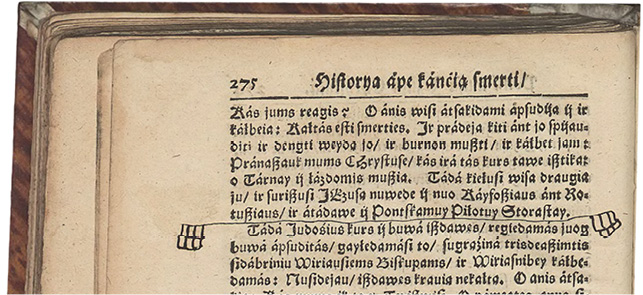 275 Historya ápe kánćią smerti/
Kás jums regis? O ánis wisi átsakidami ápsudija ij ir
kálbeia: Káltás esti smerties. Ir prádeja kiti ánt jo spijau-
diti ir dengti weyda jo/ ir burnon mußti/ ir kálbet jam:
Pránaßauk mums Chrystuse/ kás irá tás kurs tawe ißtikat
o Tárnay ij łázdomis mußia. Tádá kielusi wisa draugia
ju/ ir surißusi JEzusa nuwede ij nuo Káyfoßiaus ánt Ro-
tußiaus/ ir átádawe ij Pontskamuy Pilotuy Storastay.
Tádá Judośius kurs ij buwá ißdawes/ regiedamás juog
buwá ápsuditás/ gayledamási to/ sugrąžiná trisdeaßimtis
sidábriniu Wiriausiems Biskupams/ ir Wiriasnibey kálbe-
damás: Nusidejau/ ißdawes krauią nekalta. O anis átsa-